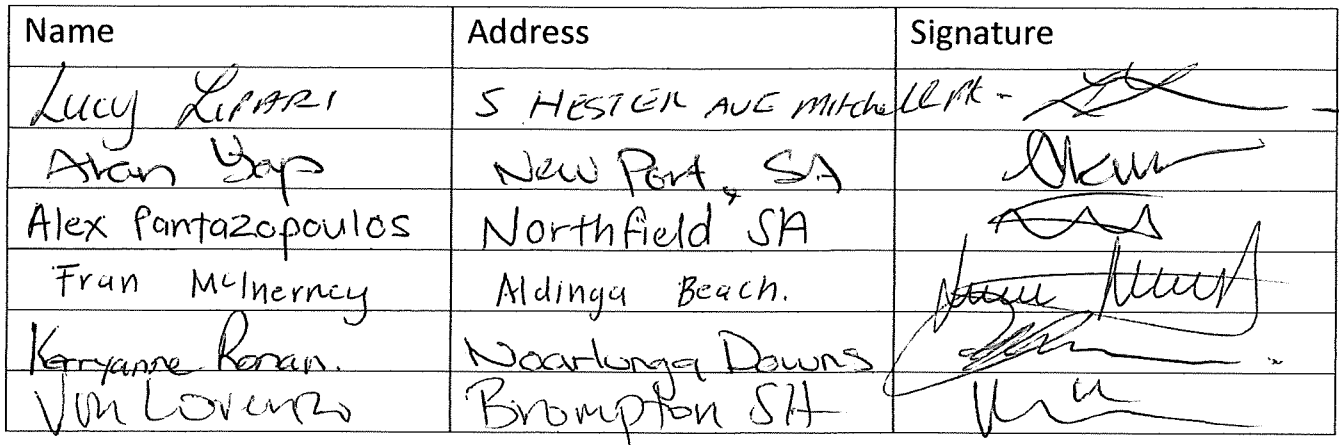 Name Address Signature
Lucy LIPARI 5 HESTER AVE Mitchell PK -
Alan Yap New Port, SA
Alex Pantazopoulos Northfield SA
Fran McInerney Aldinga Beach.
Kerryanne Ronan. Noarlunga Downs
Lorenzo Brompton SA